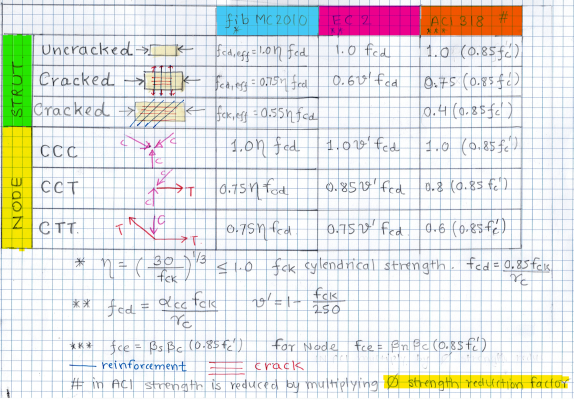 fib MC2010 EC 2 ACI 318 #
* ** ***
STRUT
Uncracked fcd,eff = 1.0η fcd 1.0 fcd 1.0 (0.85fc')
Cracked fcd,eff = 0.75η fcd 0.6υ' fcd 0.75 (0.85fc')
Cracked fck,eff = 0.55η fcd 0.4 (0.85fc')
NODE
CCC C C C 1.0η fcd 1.0υ' fcd 1.0 (0.85fc')
CCT C C T 0.75η fcd 0.85υ' fcd 0.8 (0.85 fc')
CTT. T C T 0.75η fcd 0.75υ' fcd. 0.6 (0.85fc')
* η = (30/fck)^1/3 ≤ 1.0 fck cylendrical strength. fcd = 0.85fck/γc
** fcd = αcc fck/γc υ' = 1- fck/250
*** fce = βs βc (0.85fc') for Node fce = βn βc (0.85fc')
reinforcement crack
# in ACI strength is reduced by multiplying Ø strength reduction factor